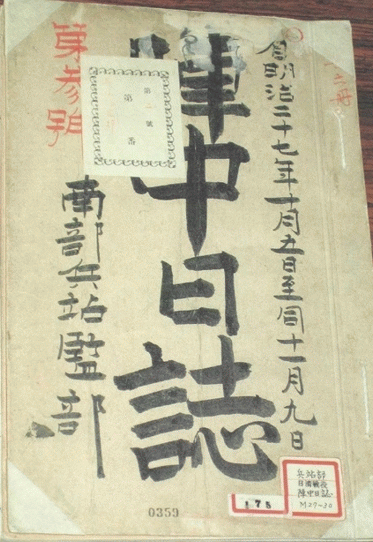 自明治二十七年十月五日至同十一月九日
陣中日誌
第参號
第 號
第 番
南部兵站監部
0359
兵站部
日清戦役
陣中日誌
M27~30